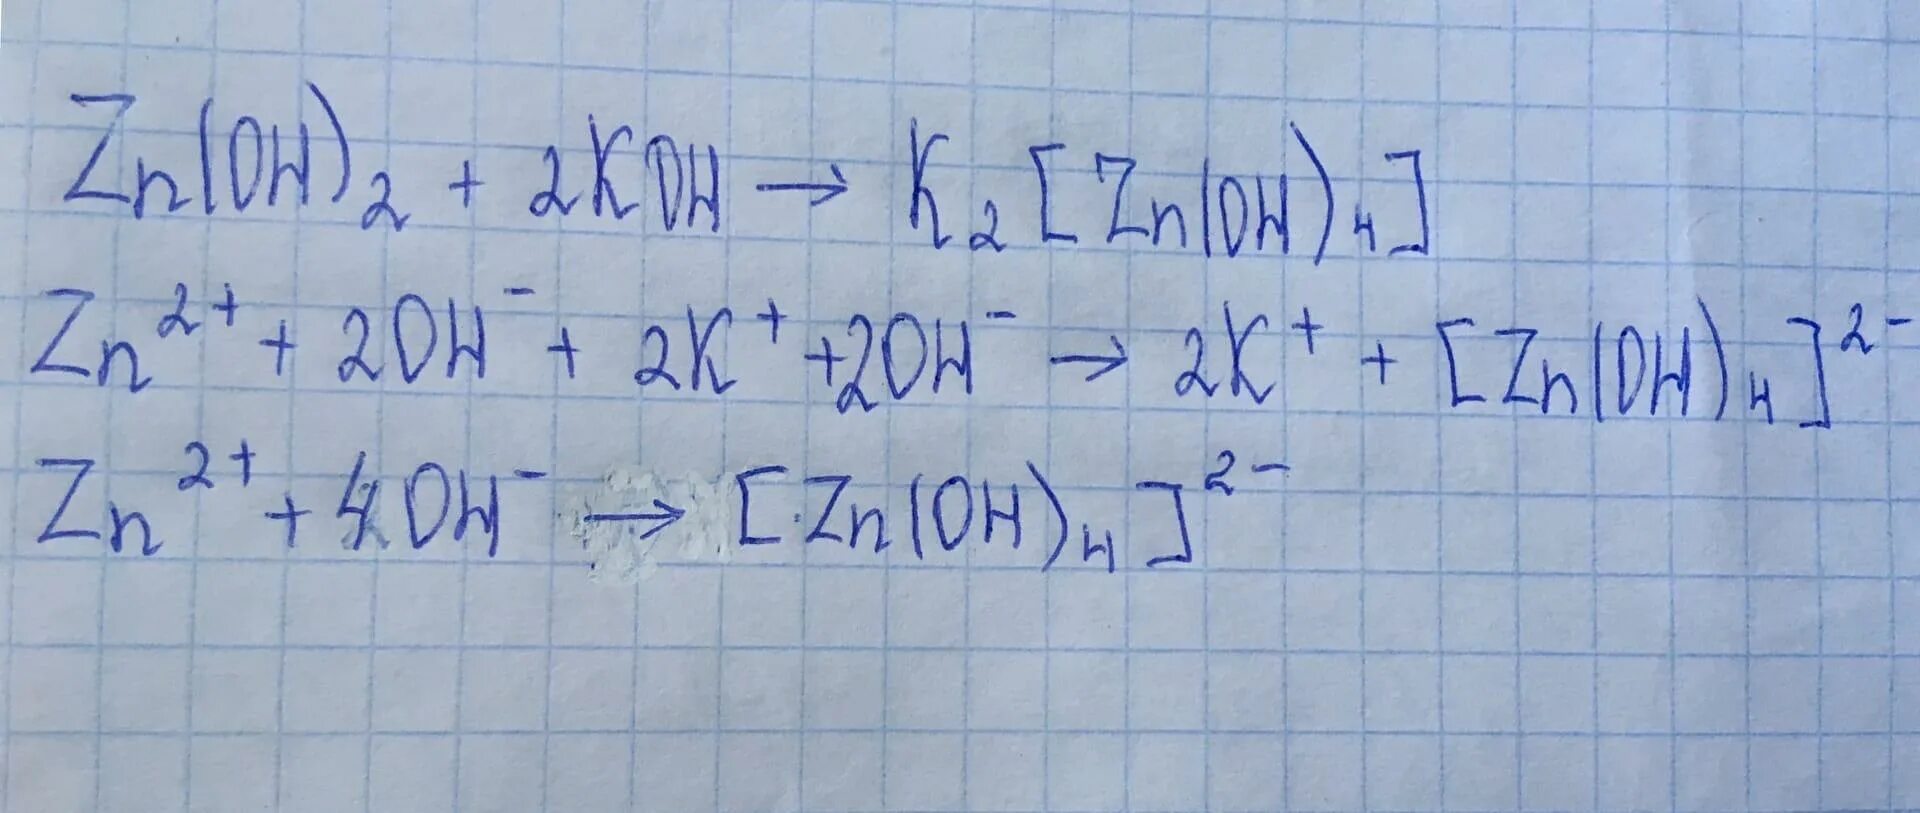 Zn(OH)₂ + 2KOH → K₂[Zn(OH)₄]
Zn²⁺ + 2OH⁻ + 2K⁺ + 2OH⁻ → 2K⁺ + [Zn(OH)₄]²⁻
Zn²⁺ + 4OH⁻ → [Zn(OH)₄]²⁻